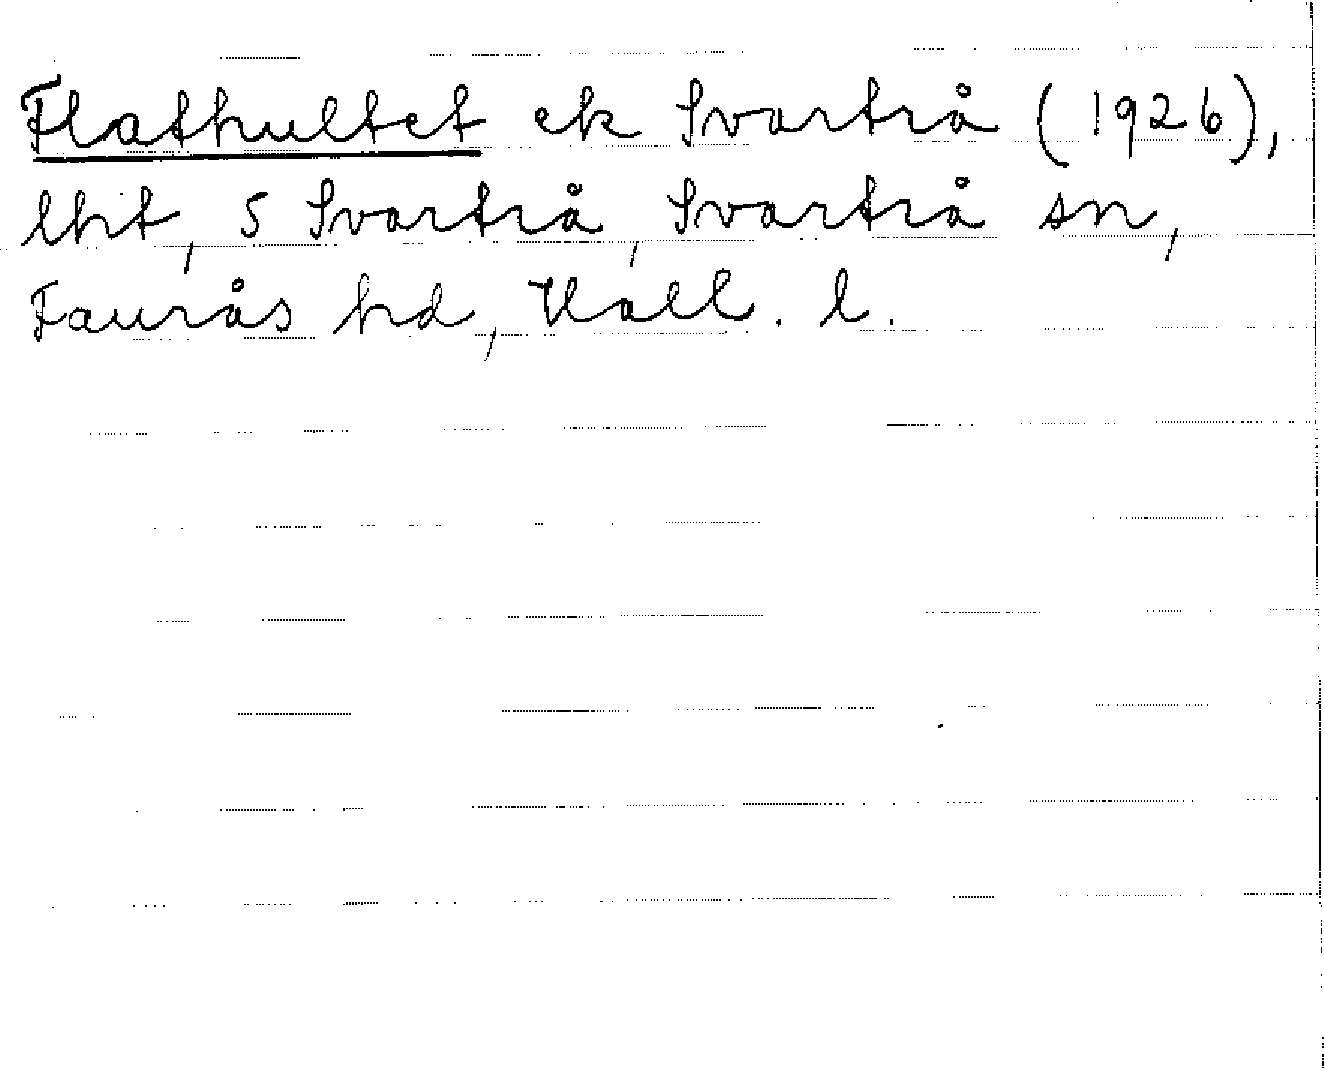 Flathultet ek Svartrå (1926),
lht, 5 Svartrå, Svartrå sn,
Faurås hd, Hall. l.